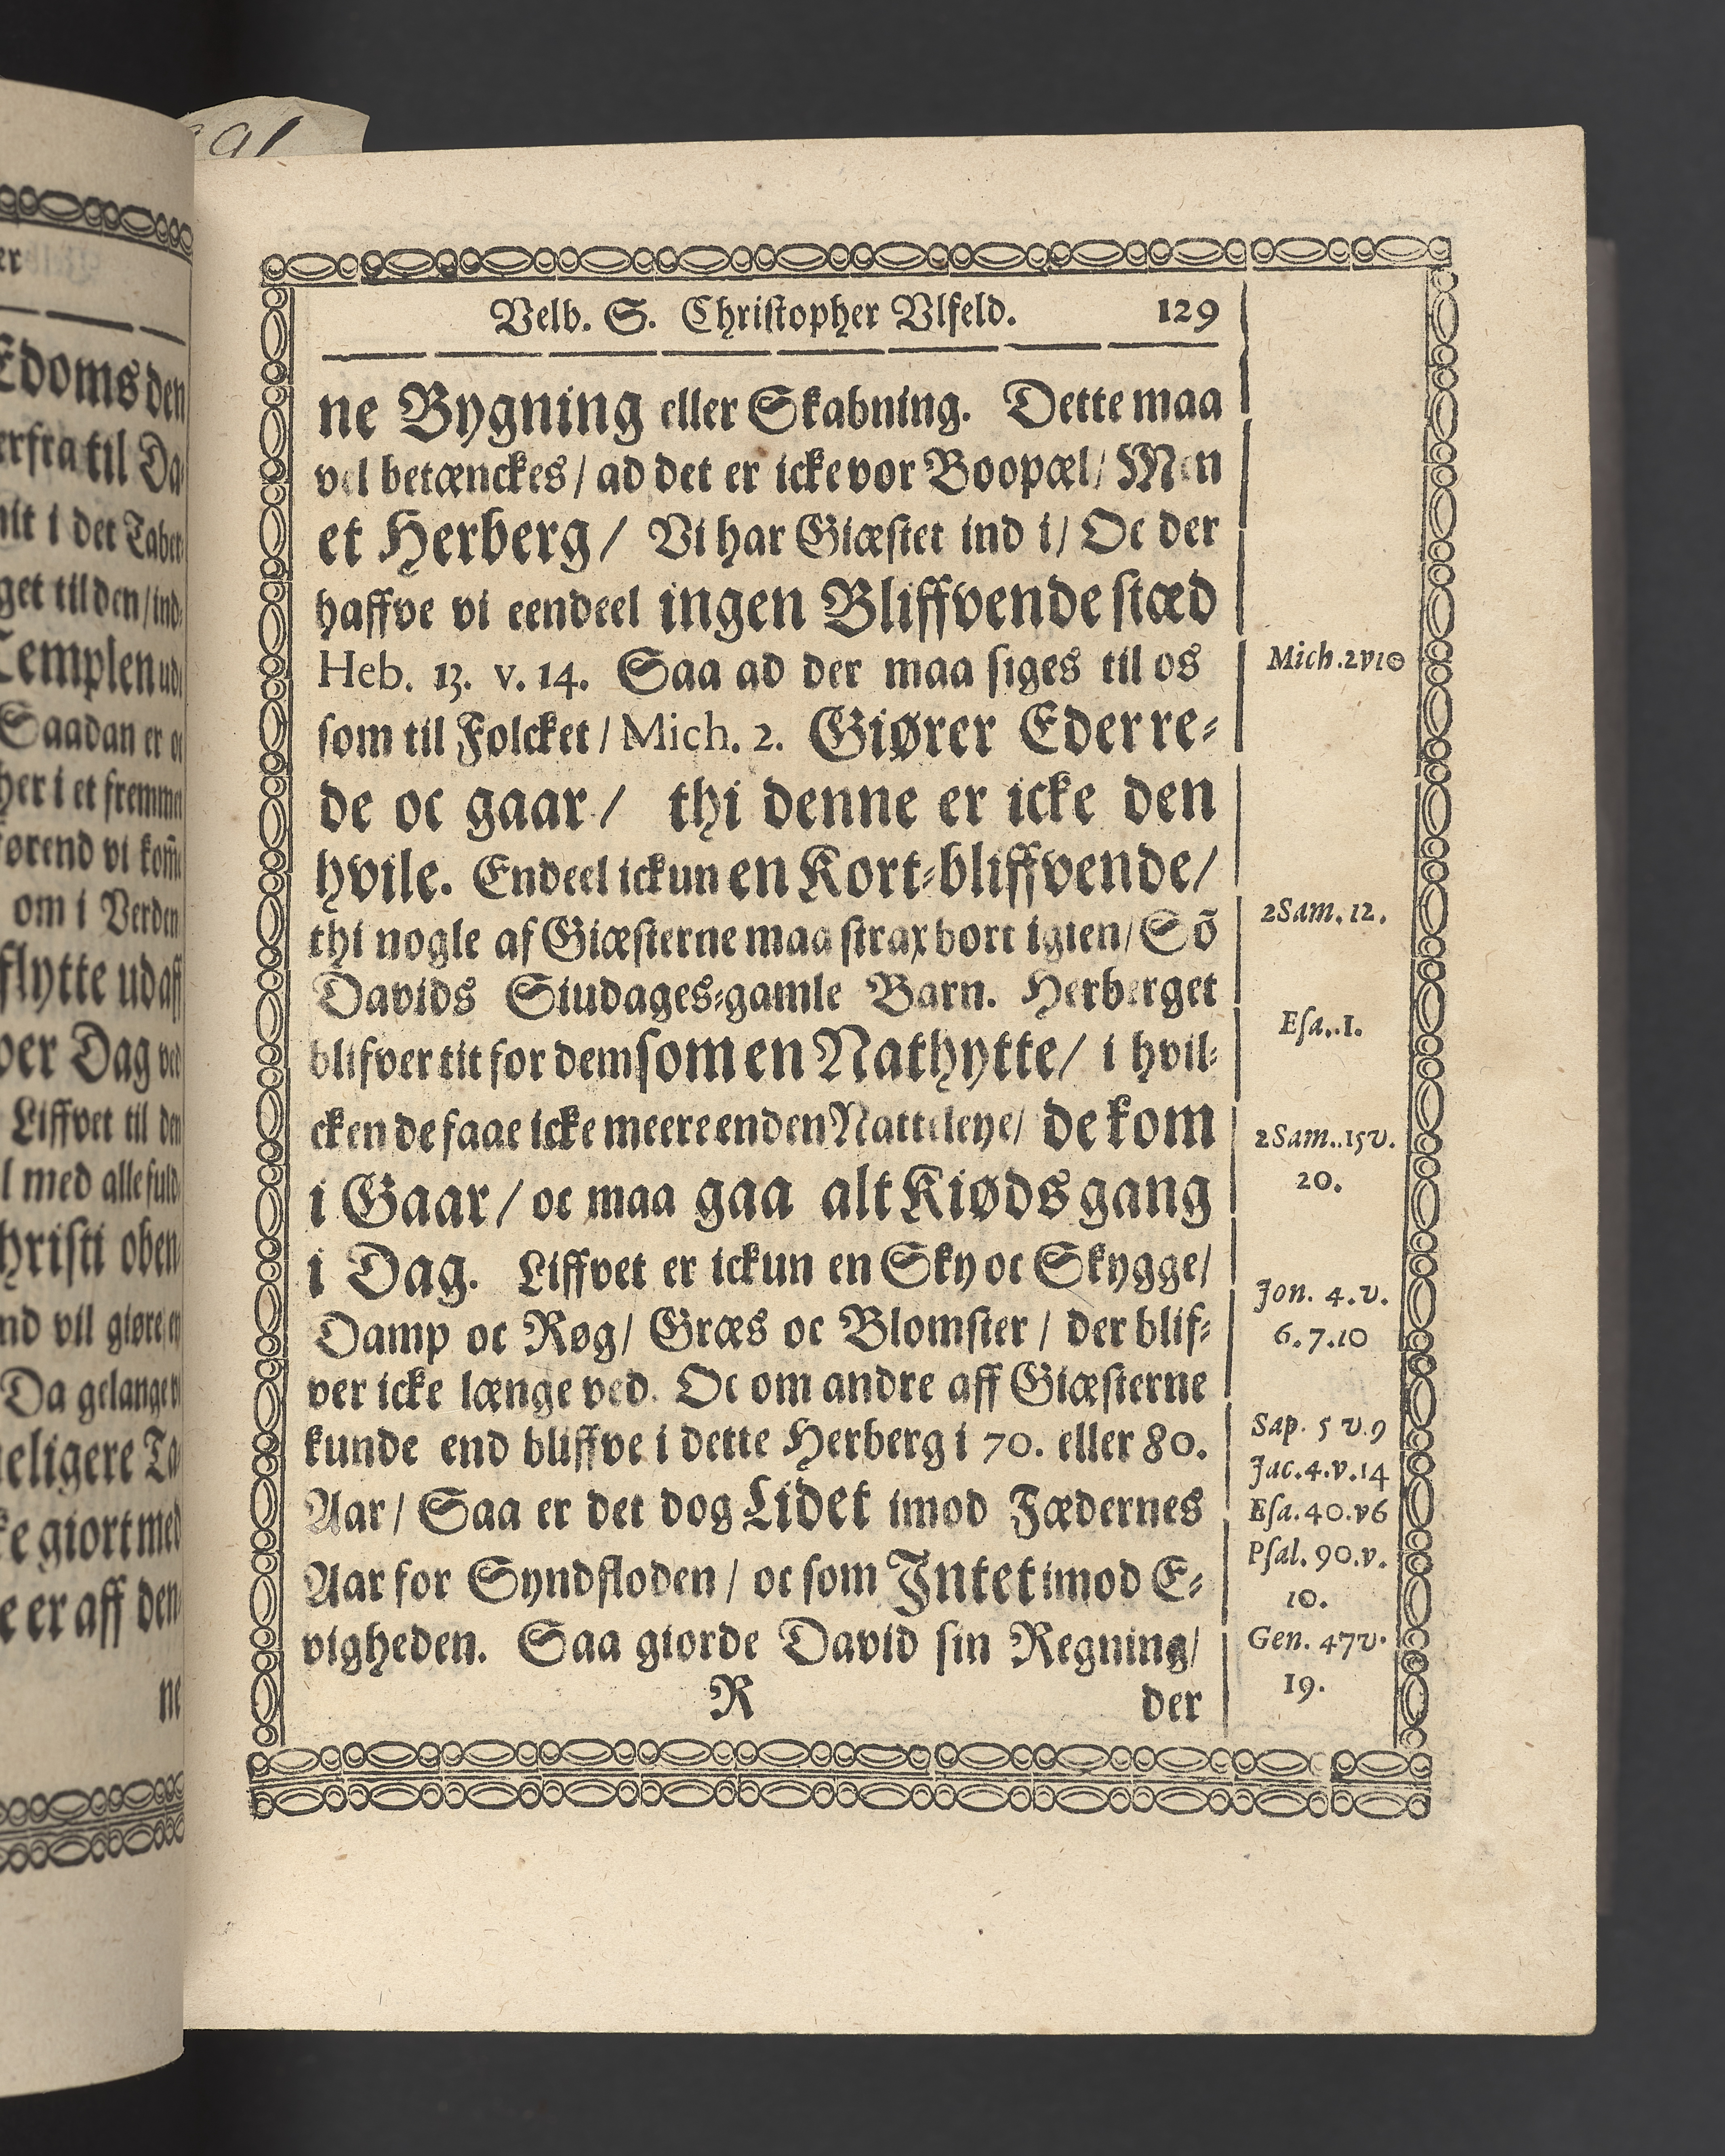 Velb. S. Christopher Vlfeld. 129
ne Bygning eller Skabning. Dette maa
vel betænckes / ad det er icke vor Boopæl / Men
et Herberg / Vi har Giæstet ind i / Oc der
haffve vi eendeel ingen Bliffvende stæd
Heb. 13. v. 14. Saa ad der maa siges til os
som til Folcket / Mich. 2. Giører Eder re-
de oc gaar / thi denne er icke den
hvile. Endeel ickun en Kort-bliffvende /
thi nogle af Giæsterne maa strax bort igien / Sõ
Davids Siudages-gamle Barn. Herberget
blifver tit for dem som en Nathytte / i hvil-
cken de faae icke meere end en Natteleye / de kom
i Gaar / oc maa gaa alt Kiøds gang
i Dag. Liffvet er ickun en Sky oc Skygge /
Damp oc Røg / Græs oc Blomster / der blif-
ver icke længe ved. Oc om andre aff Giæsterne
kunde end bliffve i dette Herberg i 70. eller 80.
Aar / Saa er det dog Lidet imod Fædernes
Aar for Syndfloden / oc som Intet imod E-
vigheden. Saa giorde David sin Regning /
R der
Mich. 2 v 10
2 Sam. 12.
Esa. 1.
2 Sam. 15 v.
20.
Jon. 4. v.
6. 7. 10
Sap. 5 v. 9
Jac. 4. v. 14
Esa. 40. v 6
Psal. 90. v.
10.
Gen. 47 v.
19.
er
Edoms den
erfra til Da-
get til den / ind-
Templen ud
Saadan er oc
her i et fremmet
ørend vi kom̃e
om i Verden
flytte ud aff
ver Dag ved
Liffvet til den
l med alle fuld
hristi oben
nd vil giøre en
Da gelange vi
eligere Ta
ke giort med
e er aff den
ne
91